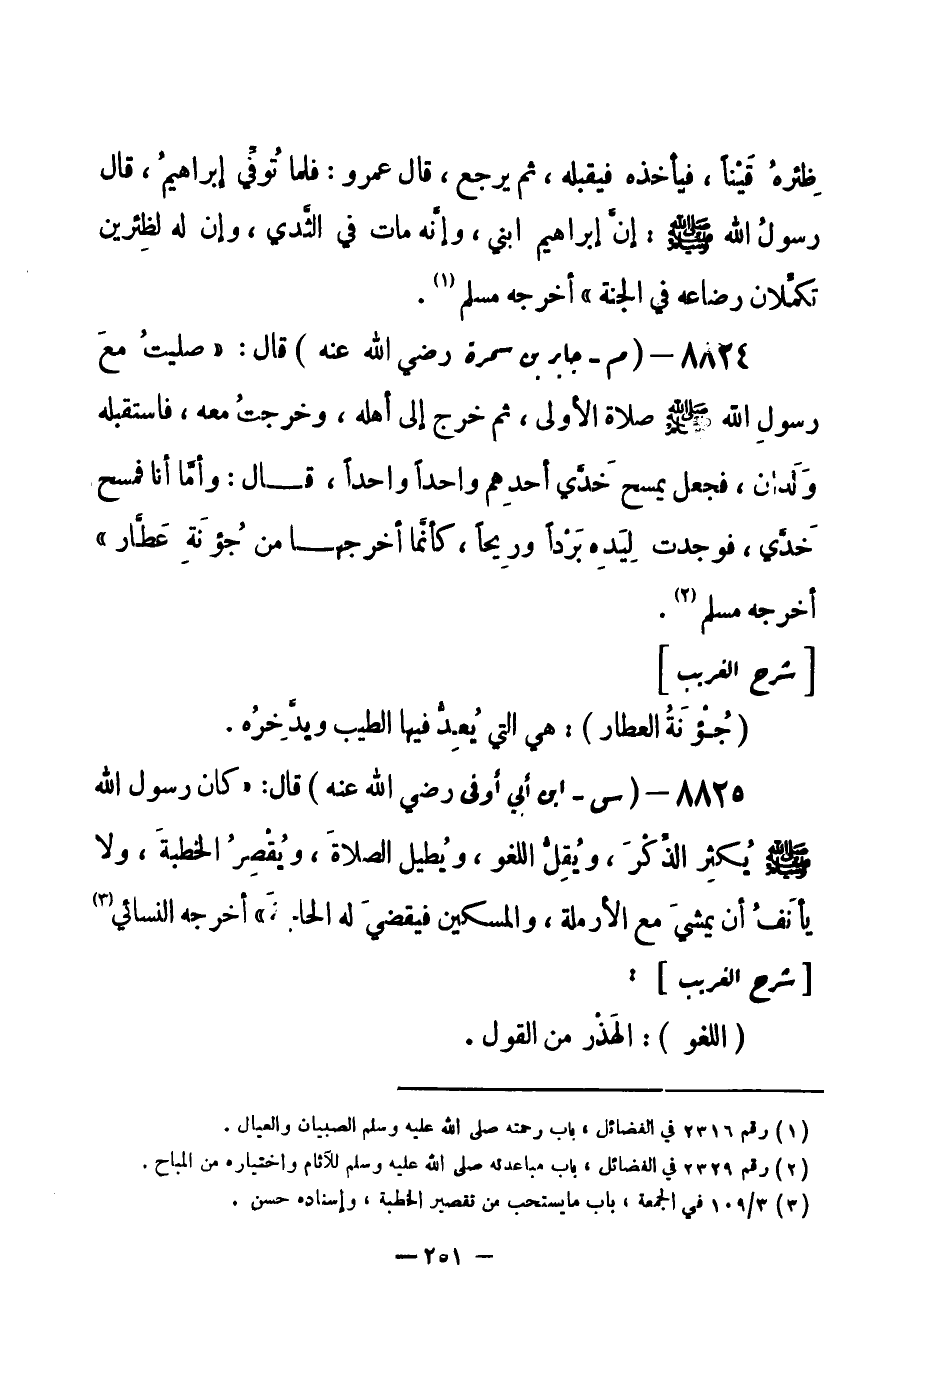 ظئرهُ قَيْناً ، فيأخذه فيقبله ، ثم يرجع ، قال عمرو : فلما تُوفِّي إبراهيمُ ، قال
رسولُ الله ﷺ : إنَّ إبراهيم ابني ، وإنَّه مات في الثَّدي ، وإن له لظِئرين
تكمَّلان رضاعه في الجنة » أخرجه مسلم (١) .
٨٨٢٤ – ( م - جابر بن سمرة رضي الله عنه ) قال : « صليتُ معَ
رسولِ الله ﷺ صلاة الأولى ، ثم خرج إلى أهله ، وخرجتُ معه ، فاستقبله
وَلَدان ، فجعل يمسح خَدَّي أحدِهم واحداً واحداً ، قال : وأمَّا أنا فمسح
خَدَّي ، فوجدت لِيَدِه بَرْداً وريحاً ، كأنَّما أخرجها من جُؤنَةِ عَطَّار »
أخرجه مسلم (٢) .
[ شرح الغريب ]
( جُؤْنَةُ العطار ) : هي التي يُعِدُّ فيها الطيب ويدَّخِرُه .
٨٨٢٥ – ( س - ابن أبي أوفى رضي الله عنه ) قال : « كان رسول الله
ﷺ يُكثِر الذِّكْرَ ، ويُقِلُّ اللغو ، ويُطيل الصلاةَ ، ويُقْصِرُ الخطبةَ ، ولا
يأنَفُ أن يمشيَ مع الأرملة ، والمسكين فيقضيَ له الحاجةَ » أخرجه النسائي (٣)
[ شرح الغريب ] :
( اللغو ) : الهَذْر من القول .
(١) رقم ٢٣١٦ في الفضائل ، باب رحمته صلى الله عليه وسلم الصبيان والعيال .
(٢) رقم ٢٣٢٩ في الفضائل ، باب مباعدته صلى الله عليه وسلم للآثام واختياره من المباح .
(٣) ١٠٩/٣ في الجمعة ، باب مايستحب من تقصير الخطبة ، وإسناده حسن .
– ٢٥١ –